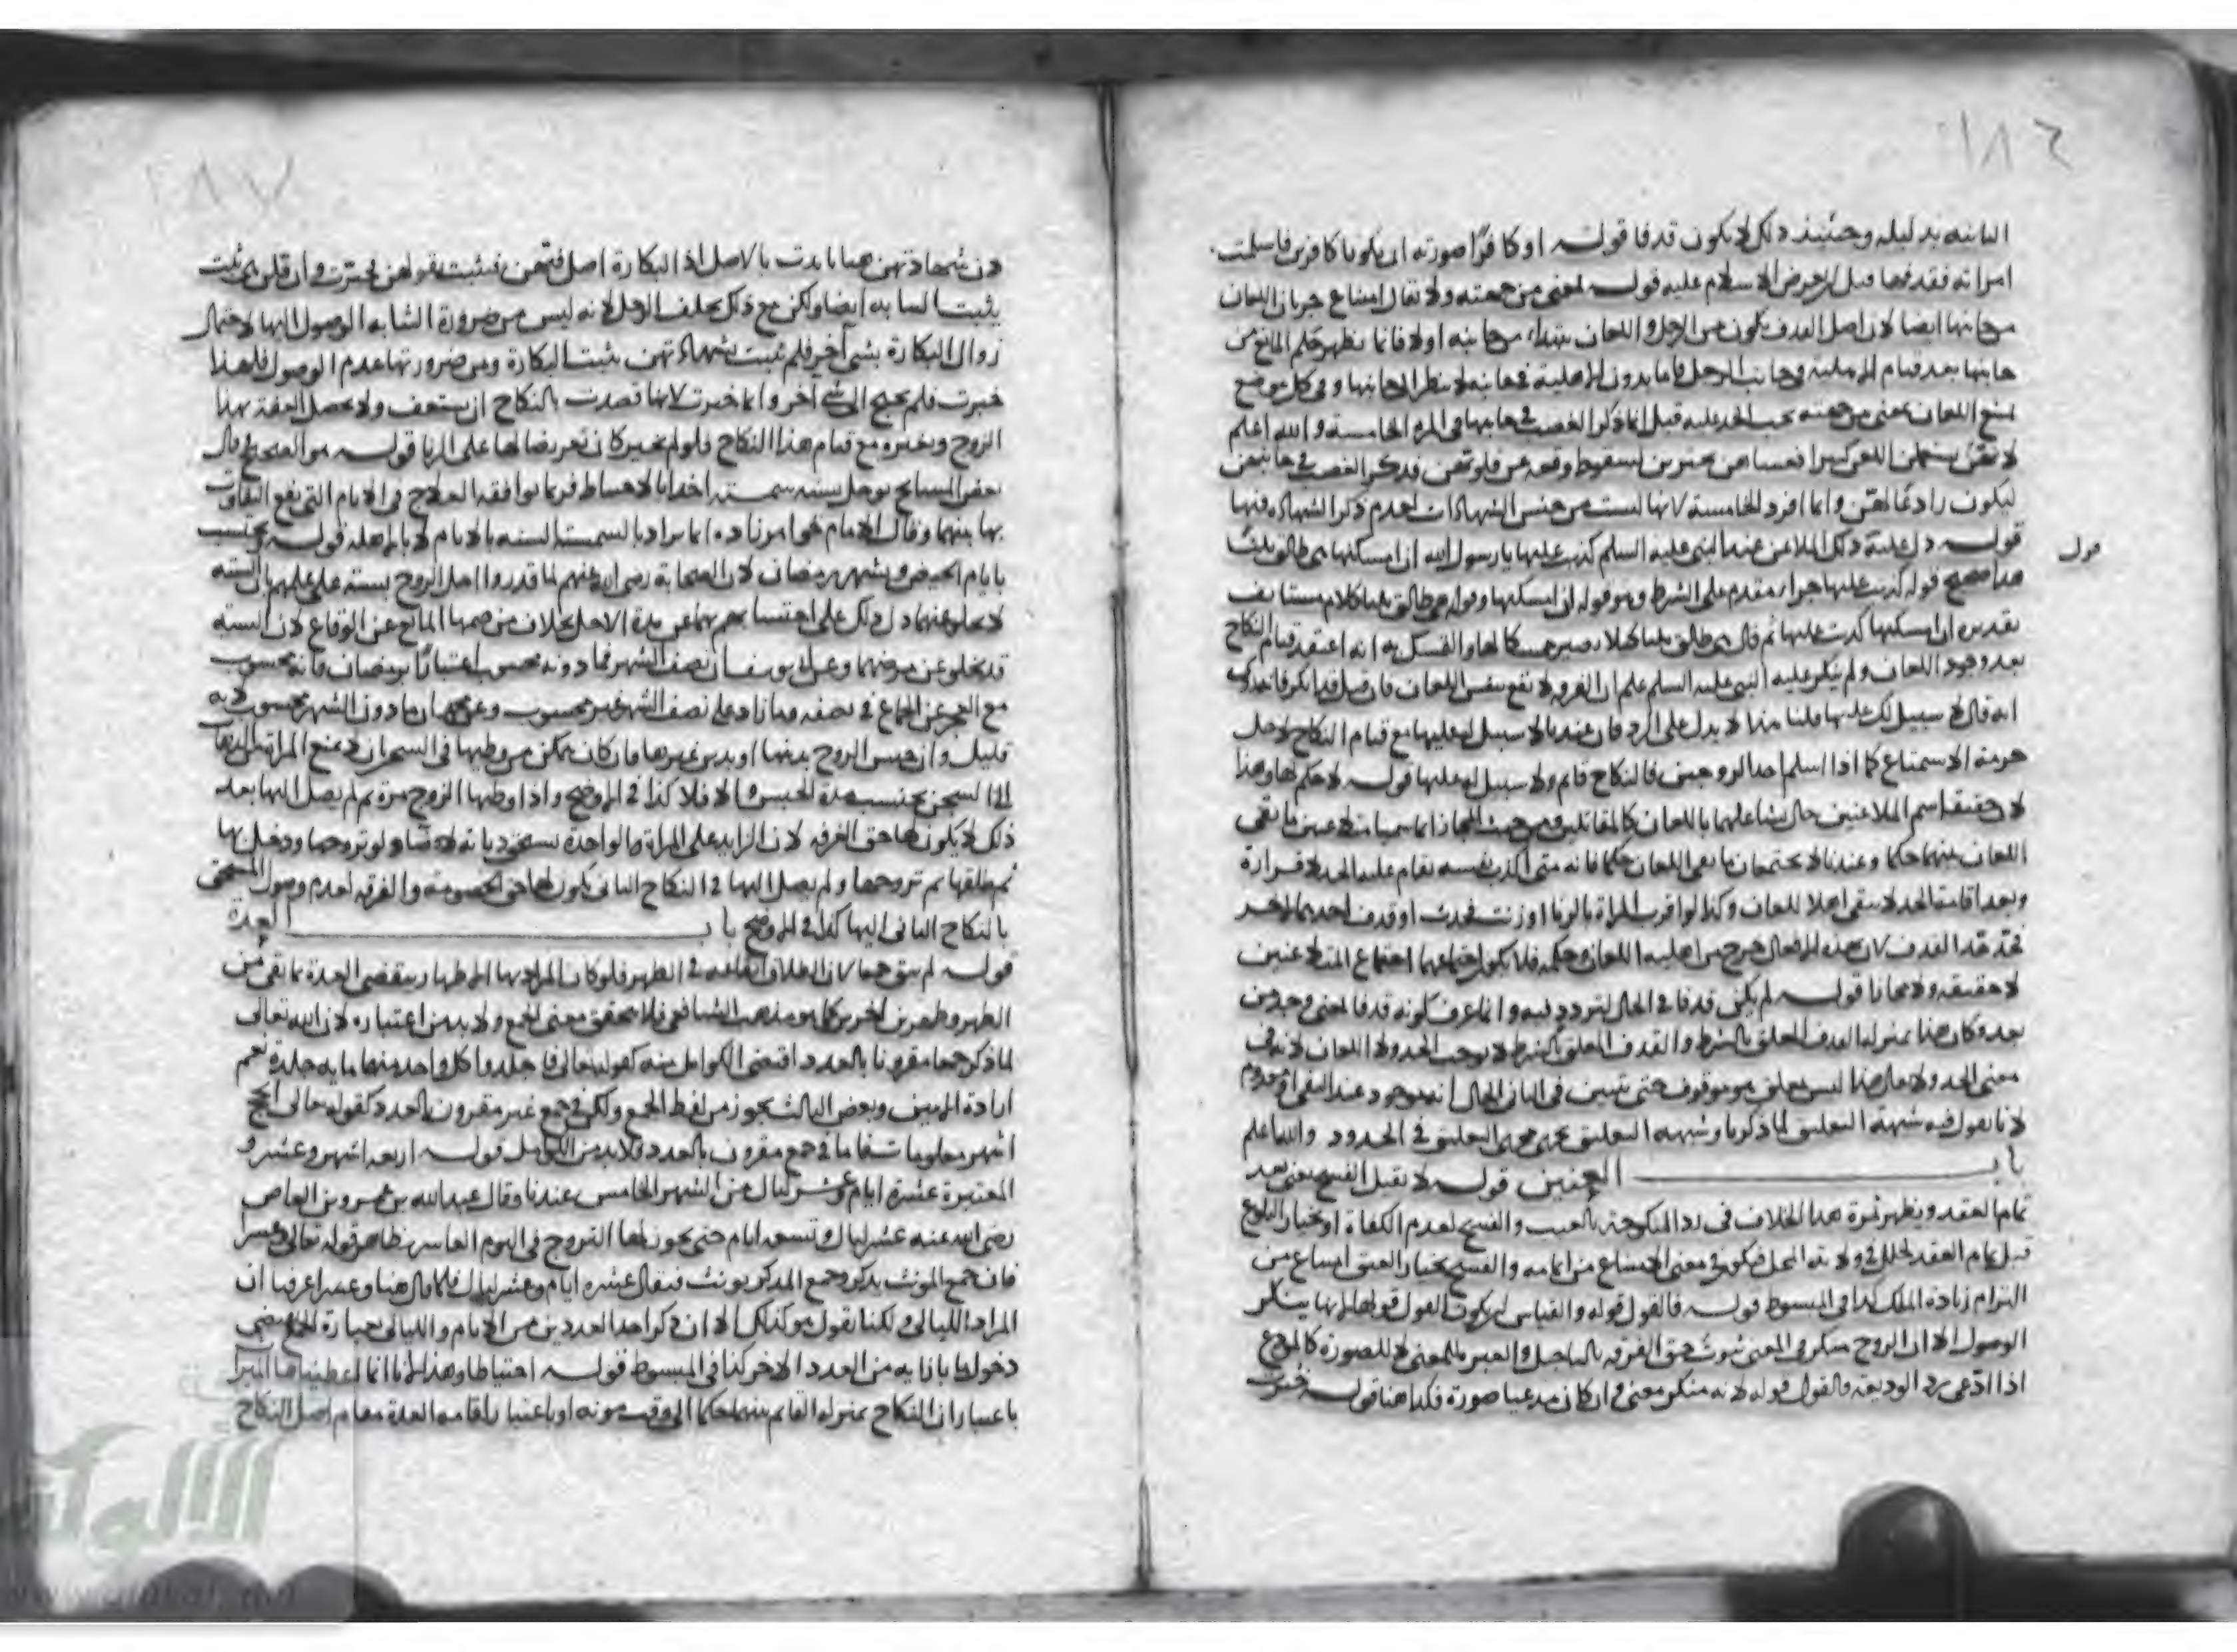 ١٨٦
وحينئذ ذلك لا يكون قذفا قوله او كافرًا صورته ان يكونا كافرين فاسلمت
امراته فقذفها قبل ان يعرض الاسلام عليه قوله لمعنى من جهته ولا يقال امتناع جريان اللعان
من جانبها ايضا لان اصل القذف يكون من الرجل و اللعان من جانبه اولا فانما يظهر حكم المانع من
جانبها بعد قيام الاهلية في جانب الرجل فاما بدون الاهلية في جانبه لا ينظر الى جانبها و في كل موضع
امتنع اللعان بمعنى من جهته يجب الحد عليه قيل انما ذكر الغضب في جانبها في المرة الخامسة والله اعلم
لانهن يستعملن اللعن كثيرا فعساهن يجترين لسقوط وقعه عن قلوبهن فذكر الغضب في جانبهن
ليكون رادعًا لهن وانما افرد الخامسة لانها ليست من جنس الشهادات لعدم ذكر الشهادة فيها
قوله دل عليه ذلك الملاعن عند النبي عليه السلم كذبت عليها يا رسول الله ان امسكتها هي طالق ثلثا
قول
هذا صحيح قوله كذبت عليها جزاء مقدم على الشرط وهو قوله ان امسكتها وقوله هي طالق ثلثا كلام مستانف
تقديره ان امسكتها كذبت عليها ثم قال هي طالق ثلثا كيلا يصير ممسكا لها والتمسك به انه اعتقد قيام النكاح
بعد وجود اللعان ولم ينكر عليه النبي عليه السلم علم ان الفرقة لا تقع بنفس اللعان فان قيل قد انكر
انه قال لا سبيل لك عليها قلنا هذا لا يدل على الرد فان عندنا لا سبيل له عليها مع قيام النكاح لاجل
حرمة الاستمتاع كما اذا اسلم احد الزوجين فالنكاح قائم ولا سبيل له عليها قوله لا حكم لها وهذا
لان حقيقة اسم الملاعنين حال تشاغلهما باللعان كالمقاتلين ومن حيث المجاز انما سميا متلاعنين ما بقي
اللعان بينهما حكما وعندنا لا يجتمعان ما بقي اللعان حكما فانه متى اكذب نفسه يقام عليه الحد لاقراره
وبعد اقامة الحد لا يبقى اهلا للعان وكذا لو اقرت المراة بالزنا او زنت فحدت او قذف احدهما
فحد حد القذف لان بهذه الافعال خرج من اهلية اللعان وحكمه فلا يكون اجتماعهما اجتماع المتلاعنين
لا حقيقة ولا مجازا قوله لم يكن قذفا في الحال لتردد فيه وانما عرف كونه قذفا لمعنى وجد من
بعد وكان هذا بمنزلة القذف المعلق بالشرط والقذف المعلق بالشرط لا يوجب الحد ولا اللعان لانه في
معنى الحد ولا يقال هذا ليس بمعلق هو موقوف حتى يتبين في الثاني الحال انه موجود عند النفي او معدوم
لانا نقول فيه شبهة التعليق لما ذكرنا وشبهة التعليق تجري مجرى التعليق في الحدود والله اعلم
باب العنين قوله لا تقبل الفسخ يعني بعد
تمام العقد ويظهر ثمرة هذا الخلاف في رد المنكوحة بالعيب والفسخ لعدم الكفاة او بخيار البلوغ
قبل تمام العقد لخلل في ولاية المحل فيكون في معنى الامتناع من اتمامه والفسخ بخيار العتق امتناع من
التزام زيادة الملك كذا في المبسوط قوله فالقول قوله والقياس ان يكون القول قولها لانها تنكر
الوصول الا ان الزوج منكر في المعنى ثبوت حق الفرقة بالتاجيل والعبرة للمعنى لا للصورة كالمودع
اذا ادعى رد الوديعة فالقول قوله لانه منكر معنى وان كان مدعيا صورة فكذا هنا قوله خيرت
١٨٧
دون شهادتهن هنا تايدت بالاصل اذ البكارة اصل فيهن فيثبت بقولهن فخيرت وان قلن هي ثيب
يثبت الثيابة ايضا ولكن مع ذلك يحلف الرجل لانه ليس من ضرورة الثيابة الوصول اليها لاحتمال
زوال البكارة بشي آخر فلم تثبت بشهادتهن يثبت البكارة ومن ضرورتها عدم الوصول فلهذا
خيرت فلم يحتج الى شي آخر وانما خيرت لانها قصدت بالنكاح ان تستعف ولا يحصل العفة بهذا
الزوج وبغيره مع قيام هذا النكاح فلو لم تخير كان تعريضا لها على الزنا قوله هو الصحيح قال
بعض المشايخ يؤجل سنة شمسية اخذا بالاحتياط فربما توافقه العلاج في الايام التي يقع التفاوت
بها بينهما وقال الامام خواهر زاده انما يراد بالسنة السنة بالايام لا بالاهلة قوله يحتسب
بايام الحيض وشهر رمضان لان الصحابة رضي الله عنهم لما قدروا اجل الزوج بسنة على علمهم بان السنة
لا تخلو عنهما دل ذلك على احتسابهم بهما عن مدة الاجل بخلاف مرضهما المانع عن الوقاع لان السنة
قد تخلو عن مرضهما وعن ابي يوسف ان نصف الشهر فما دونه محسوب اعتبارًا برمضان فانه محسوب
مع العجز عن الجماع في نصفه وما زاد على نصف الشهر غير محسوب وعن محمد ان ما دون الشهر محسوب لانه
قليل وان حبس الزوج بدينها او بدين غيرها فان كان يمكن من وطيها في السجن ان لا تمنع المراة
الى السجن يحتسب مدة الحبس والا فلا كذا في الايضاح واذا وطيها الزوج مرة ثم لم يصل اليها بعد
ذلك لا يكون لها حق الفرقة لان الزايد على المرة الواحدة يستحق ديانة لا قضاء ولو تزوجها ودخل بها
ثم طلقها ثم تزوجها ولم يصل اليها في النكاح الثاني يكون لها حق الخصومة والفرقة لعدم وصول المستحق
بالنكاح الثاني اليها كذا في الايضاح باب العدة
قوله لم يبق جمعا لان الطلاق ايقاعه في الطهر فلو كان المراد بها الاطهار ينقضي العدة بما بقي من
الطهر وطهرين اخرين كما هو مذهب الشافعي فلا يتحقق معنى الجمع ولا بد من اعتباره لان الله تعالى
لما ذكر جمعا مقرونا بالعدد اقتضى الكوامل منه كقوله تعالى فاجلدوا كل واحد منهما ماية جلدة نعم
ارادة الاثنين وبعض الثالث يجوز من لفظ الجمع ولكن في جمع غير مقرون بالعدد كقوله تعالى الحج
اشهر معلومات فاما في جمع مقرون بالعدد فلا بد من الكوامل قوله اربعة اشهر وعشر و
المعتبرة عشرة ايام وعشر ليال من الشهر الخامس عندنا وقال عبد الله بن عمرو بن العاص
رضي الله عنه عشر ليال وتسعة ايام حتى يجوز لها التزوج في اليوم العاشر بظاهر قوله تعالى وعشرا
فان جمع المونث يذكر وجمع المذكر يونث فيقال عشرة ايام وعشر ليال فلما قال هنا وعشرا عرفنا ان
المراد الليالي ولكنا نقول هو كذلك الا ان ذكر احد العددين من الايام والليالي بعبارة الجمع يقتضي
دخول ما بازايه من العدد الاخر كذا في المبسوط قوله احتياطا وهذا لانا انما اعطيناها الميراث
باعتبار ان النكاح بمنزلة القايم بينهما حكما الى وقت موته او باعتبار اقامة العدة مقام اصل النكاح